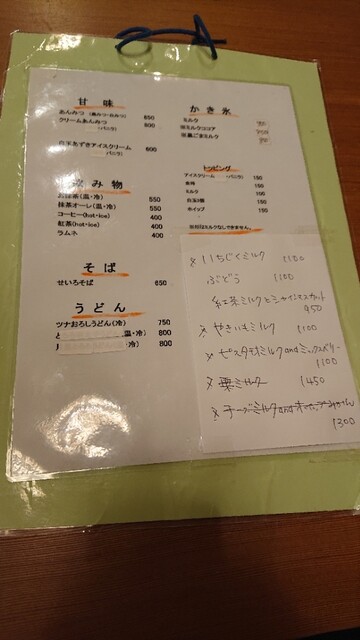 甘 味
あんみつ (黒みつ・白みつ) 650
クリームあんみつ 800
(バニラ)
白玉あずきアイスクリーム 600
(バニラ)
飲み物
お抹茶(温・冷) 550
抹茶オーレ(温・冷) 550
コーヒー(hot・ice) 400
紅茶(hot・ice) 400
ラムネ 400
そば
せいろそば 650
うどん
ツナおろしうどん(冷) 750
温・冷) 800
800
かき氷
ミルク
トッピング
アイスクリーム (バニラ) 150
ミルク 100
白玉3個 150
ホイップ 150
※いちじくミルク 1100
ぶどう 1100
紅茶ミルクとシャインマスカット
950
※やきいもミルク 1100
※ピスタチオミルクandミックスベリー
1100
※栗ミルク 1450
1300